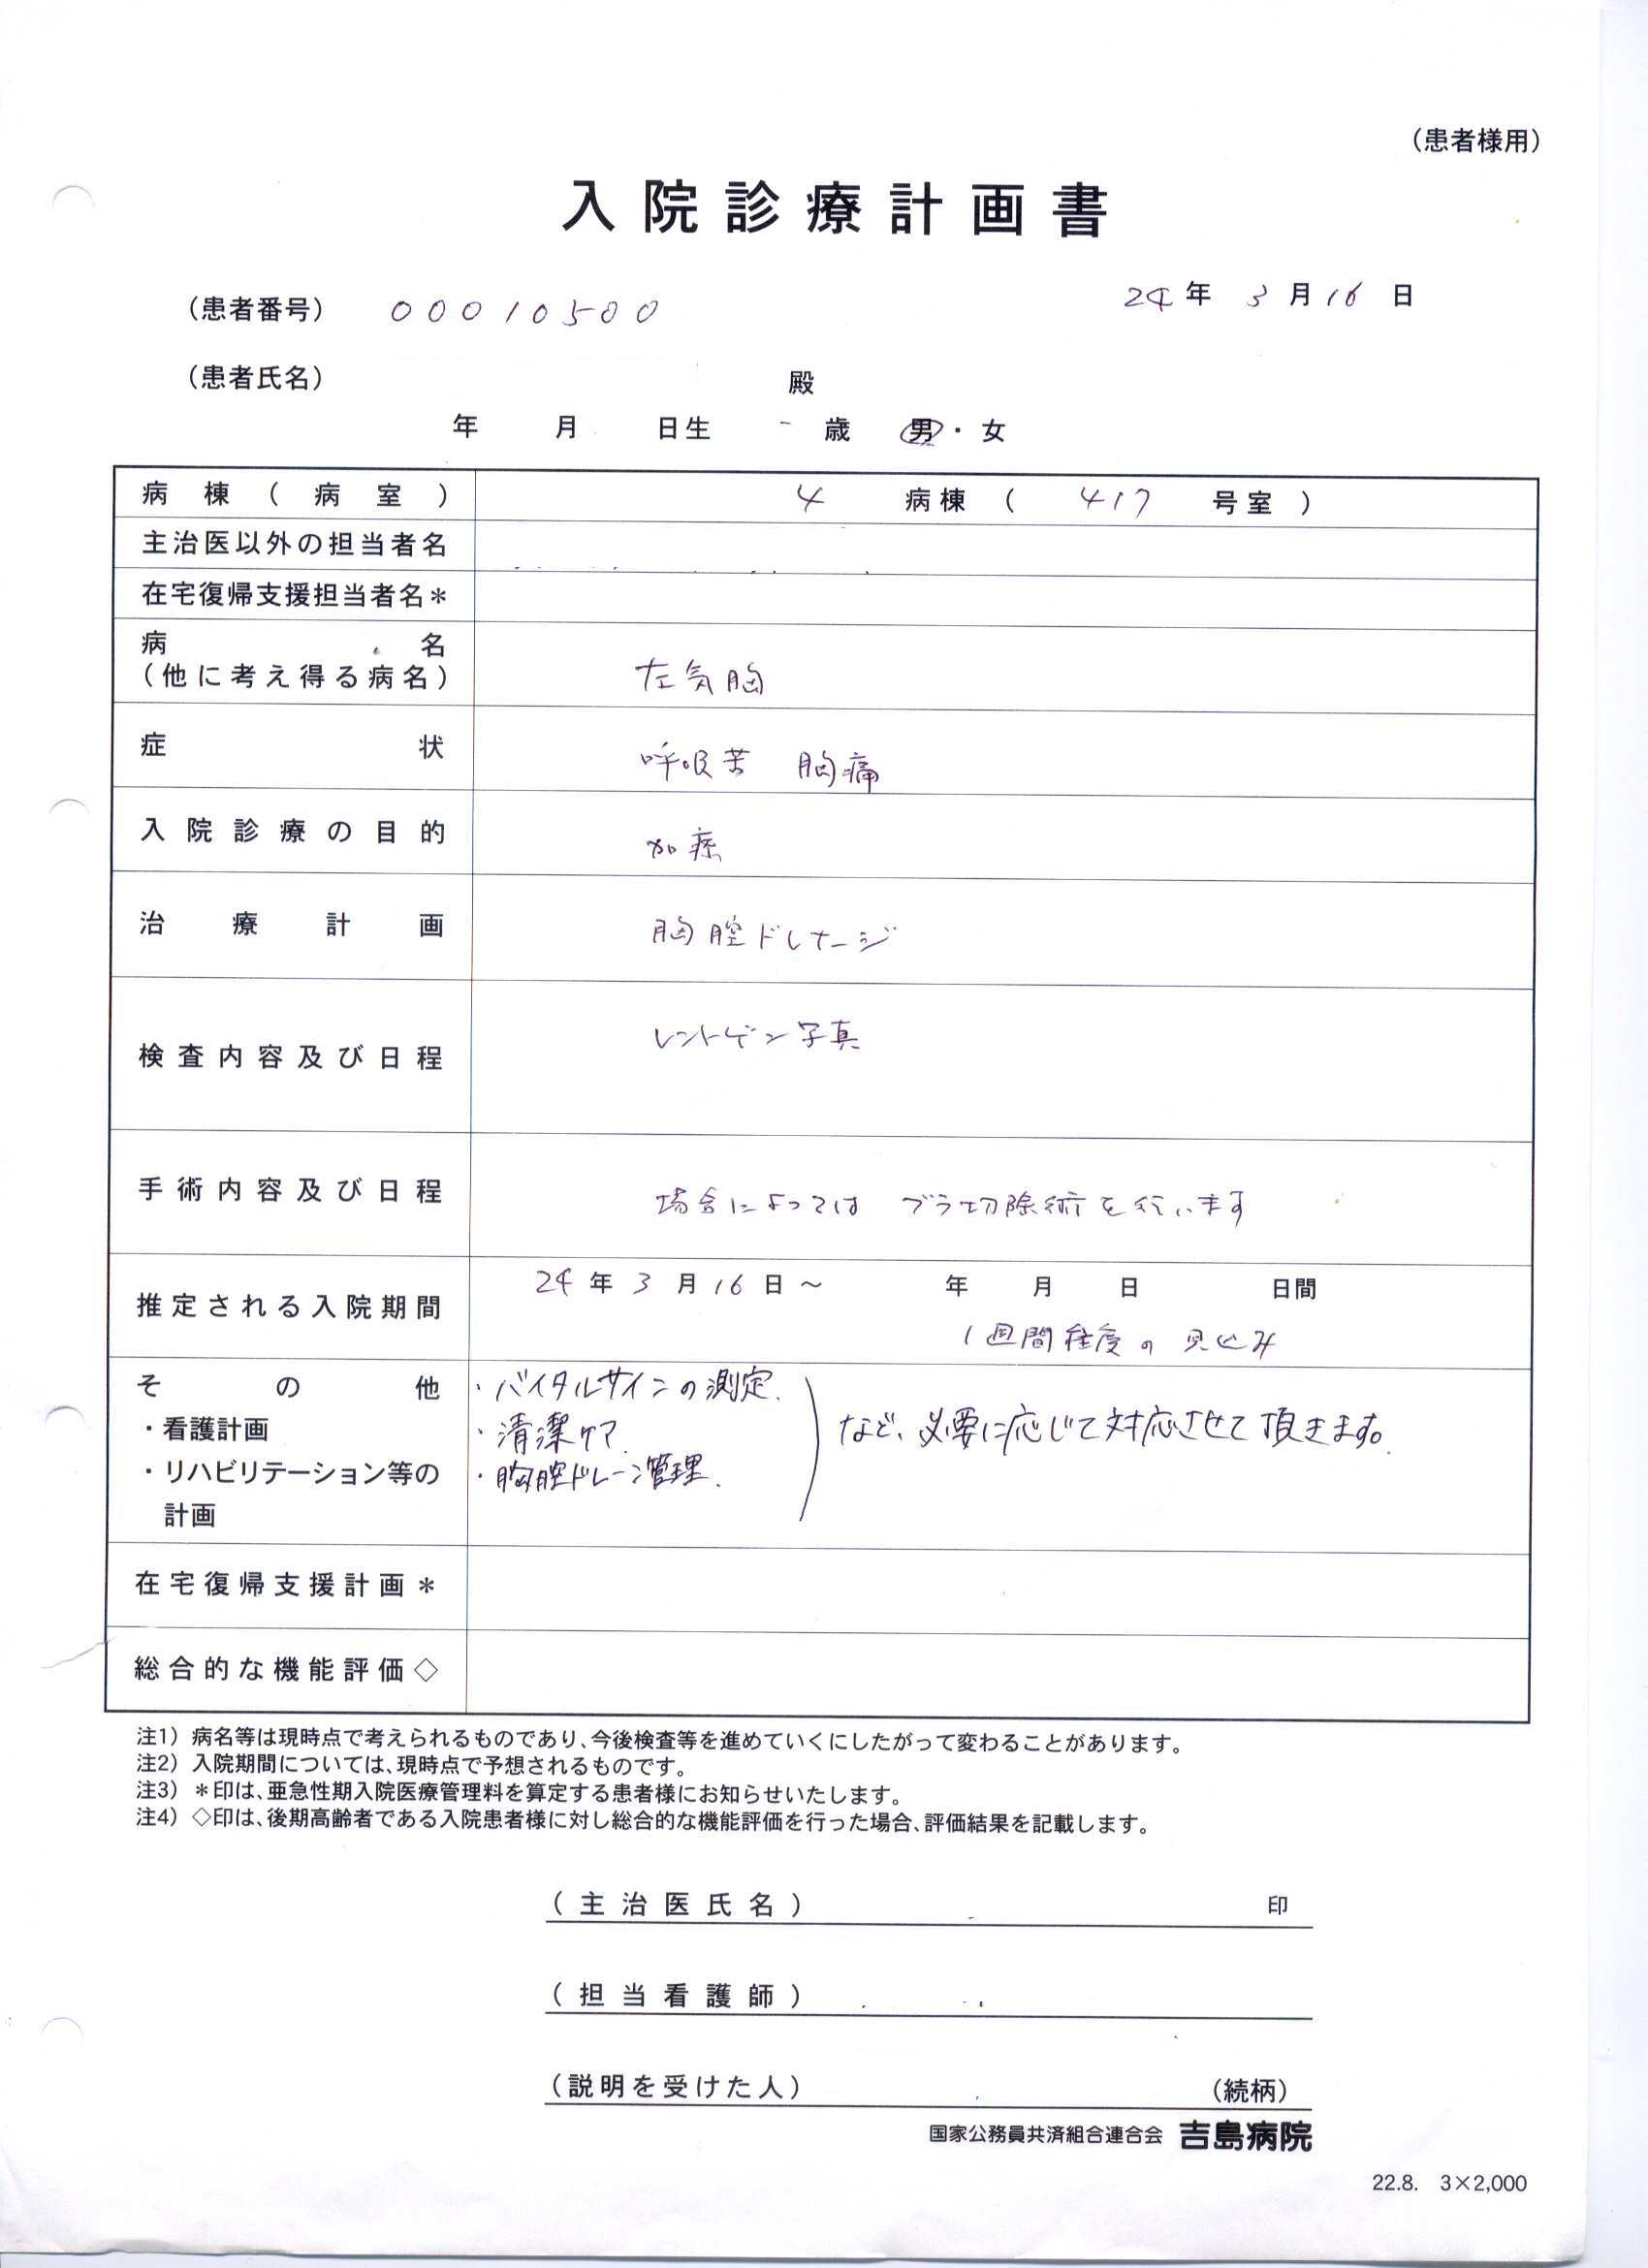 （患者様用）
入院診療計画書
（患者番号） 00010500 24年 3月16日
（患者氏名） 殿
年 月 日生 歳 男・女
病棟（病室） 4 病棟（ 417 号室）
主治医以外の担当者名
在宅復帰支援担当者名＊
病名
（他に考え得る病名） 左気胸
症状 呼吸苦 胸痛
入院診療の目的 加療
治療計画 胸腔ドレナージ
検査内容及び日程 レントゲン写真
手術内容及び日程 場合によっては ブラ切除術を行います
推定される入院期間 24年 3月16日～ 年 月 日 日間
1週間程度の見込み
その他 ・バイタルサインの測定.
・看護計画 ・清潔ケア. など、必要に応じて対応させて頂きます。
・リハビリテーション等の ・胸腔ドレーン管理.
計画
在宅復帰支援計画＊
総合的な機能評価◇
注1）病名等は現時点で考えられるものであり、今後検査等を進めていくにしたがって変わることがあります。
注2）入院期間については、現時点で予想されるものです。
注3）＊印は、亜急性期入院医療管理料を算定する患者様にお知らせいたします。
注4）◇印は、後期高齢者である入院患者様に対し総合的な機能評価を行った場合、評価結果を記載します。
（主治医氏名） 印
（担当看護師）
（説明を受けた人） （続柄）
国家公務員共済組合連合会 吉島病院
22.8. 3×2,000